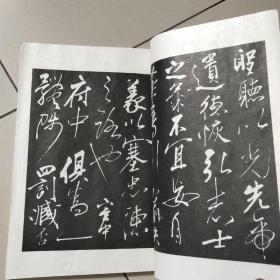 聖聽以光先帝
遺德恢弘志士
之氣不宜妄自
義以塞忠諫
之路也宮中
府中俱為一
體陟罰臧否